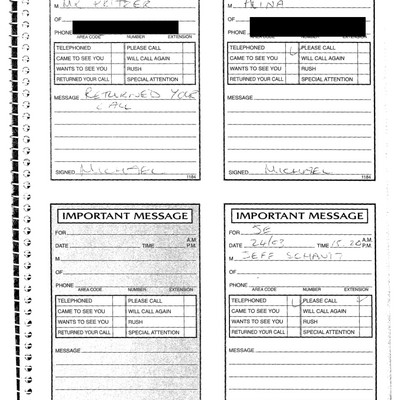 M MR PRITZER
OF
PHONE
AREA CODE NUMBER EXTENSION
TELEPHONED PLEASE CALL
CAME TO SEE YOU WILL CALL AGAIN
WANTS TO SEE YOU RUSH
RETURNED YOUR CALL SPECIAL ATTENTION
MESSAGE RETURNED YOUR
CALL
SIGNED MICHAEL
1184
M ALINA
OF
PHONE
AREA CODE NUMBER EXTENSION
TELEPHONED PLEASE CALL
CAME TO SEE YOU WILL CALL AGAIN
WANTS TO SEE YOU RUSH
RETURNED YOUR CALL SPECIAL ATTENTION
MESSAGE
SIGNED MICHAEL
1184
IMPORTANT MESSAGE
FOR
DATE TIME A.M. P.M.
M
OF
PHONE
AREA CODE NUMBER EXTENSION
TELEPHONED PLEASE CALL
CAME TO SEE YOU WILL CALL AGAIN
WANTS TO SEE YOU RUSH
RETURNED YOUR CALL SPECIAL ATTENTION
MESSAGE
IMPORTANT MESSAGE
FOR JE
DATE 24/03 TIME 15.20 A.M. P.M.
M JEFF
OF
PHONE
AREA CODE NUMBER EXTENSION
TELEPHONED PLEASE CALL
CAME TO SEE YOU WILL CALL AGAIN
WANTS TO SEE YOU RUSH
RETURNED YOUR CALL SPECIAL ATTENTION
MESSAGE